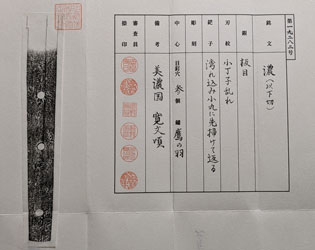 第一九二八二号
銘文 濃(以下切)
鍛 板目
刃紋 小丁子乱れ
鋩子 湾れ込み小丸に先掃けて返る
彫刻
中心 目釘穴 参個 鑢 鷹の羽
備考 美濃国 寛文頃
審査員
捺印